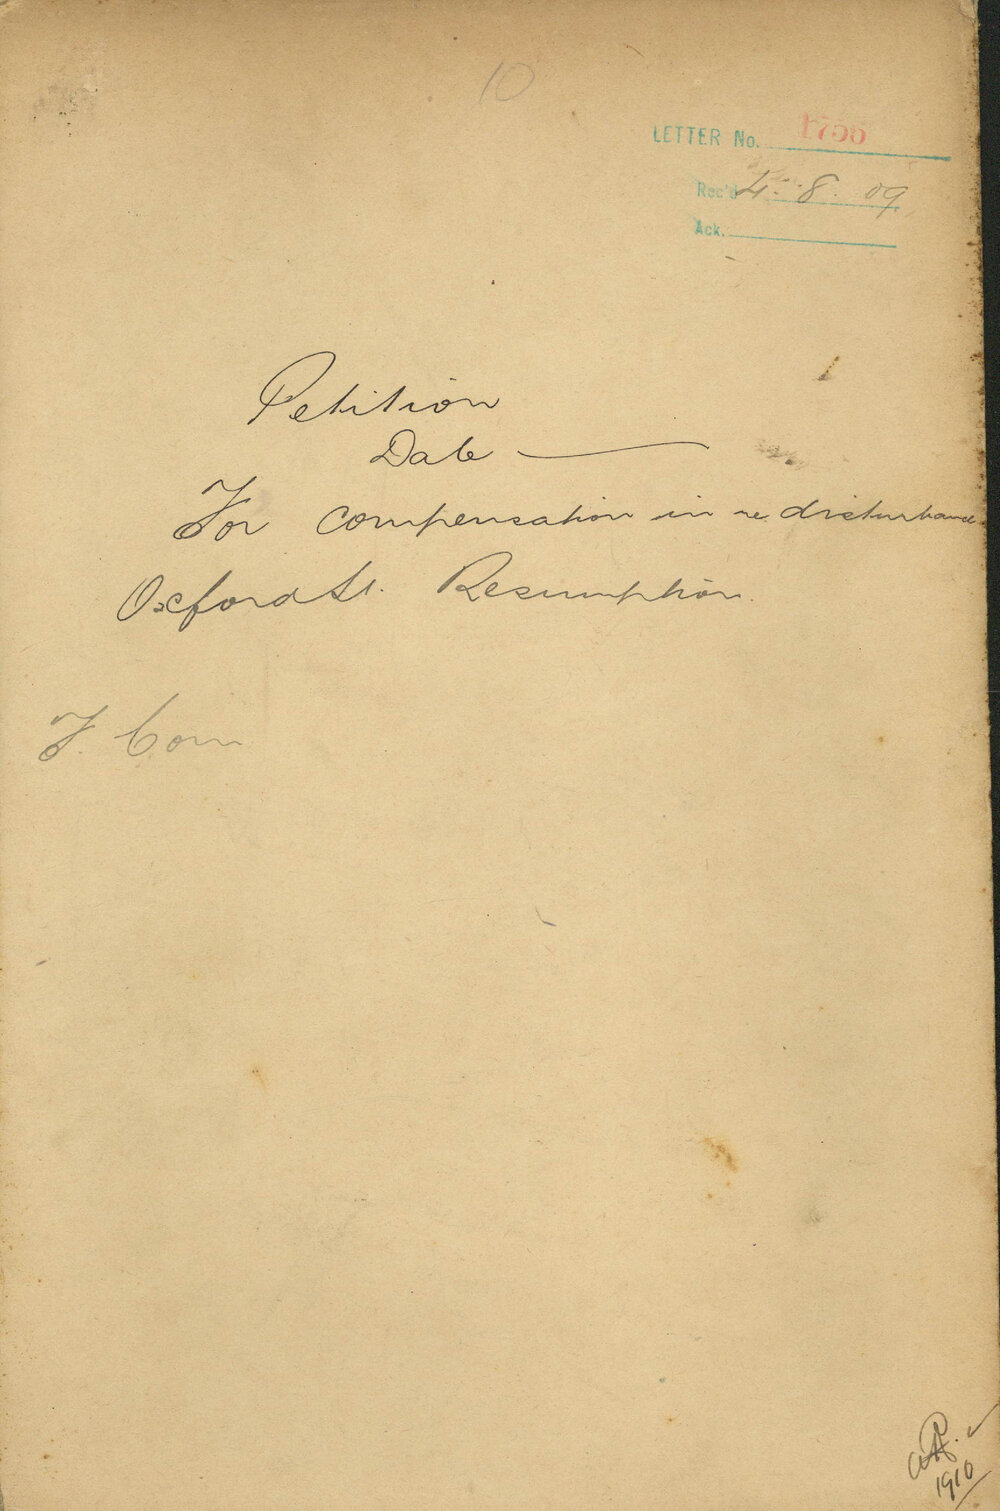 10
LETTER No. 1756
Rec'd 4. 8. 09
Ack.
Petition
Date
For compensation in re disturbance
Oxford St. Resumption.
F. Com
1910